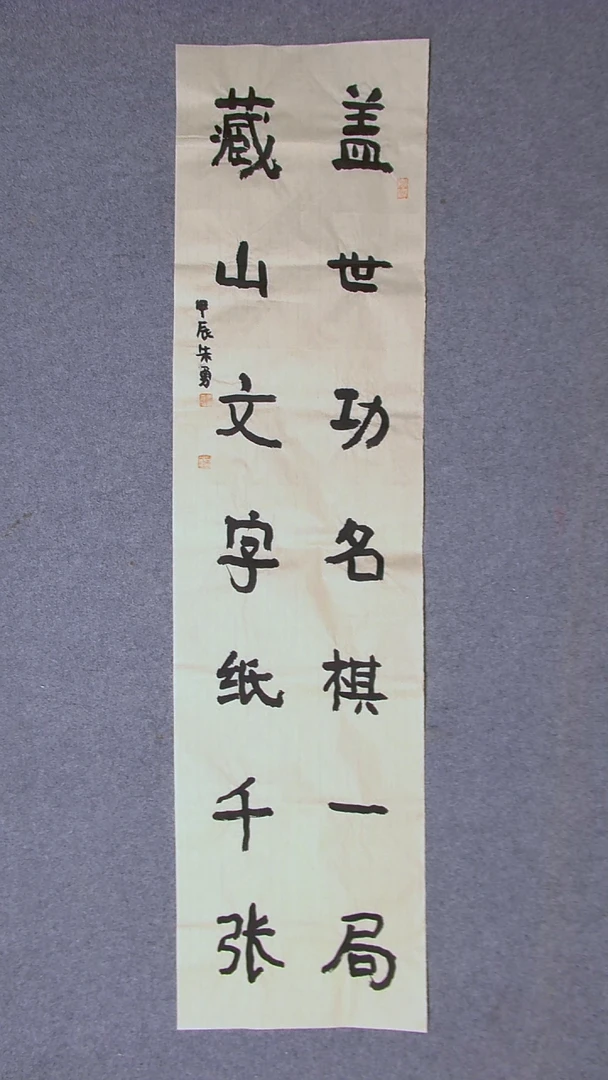 盖世功名棋一局
藏山文字纸千张
甲辰朱勇